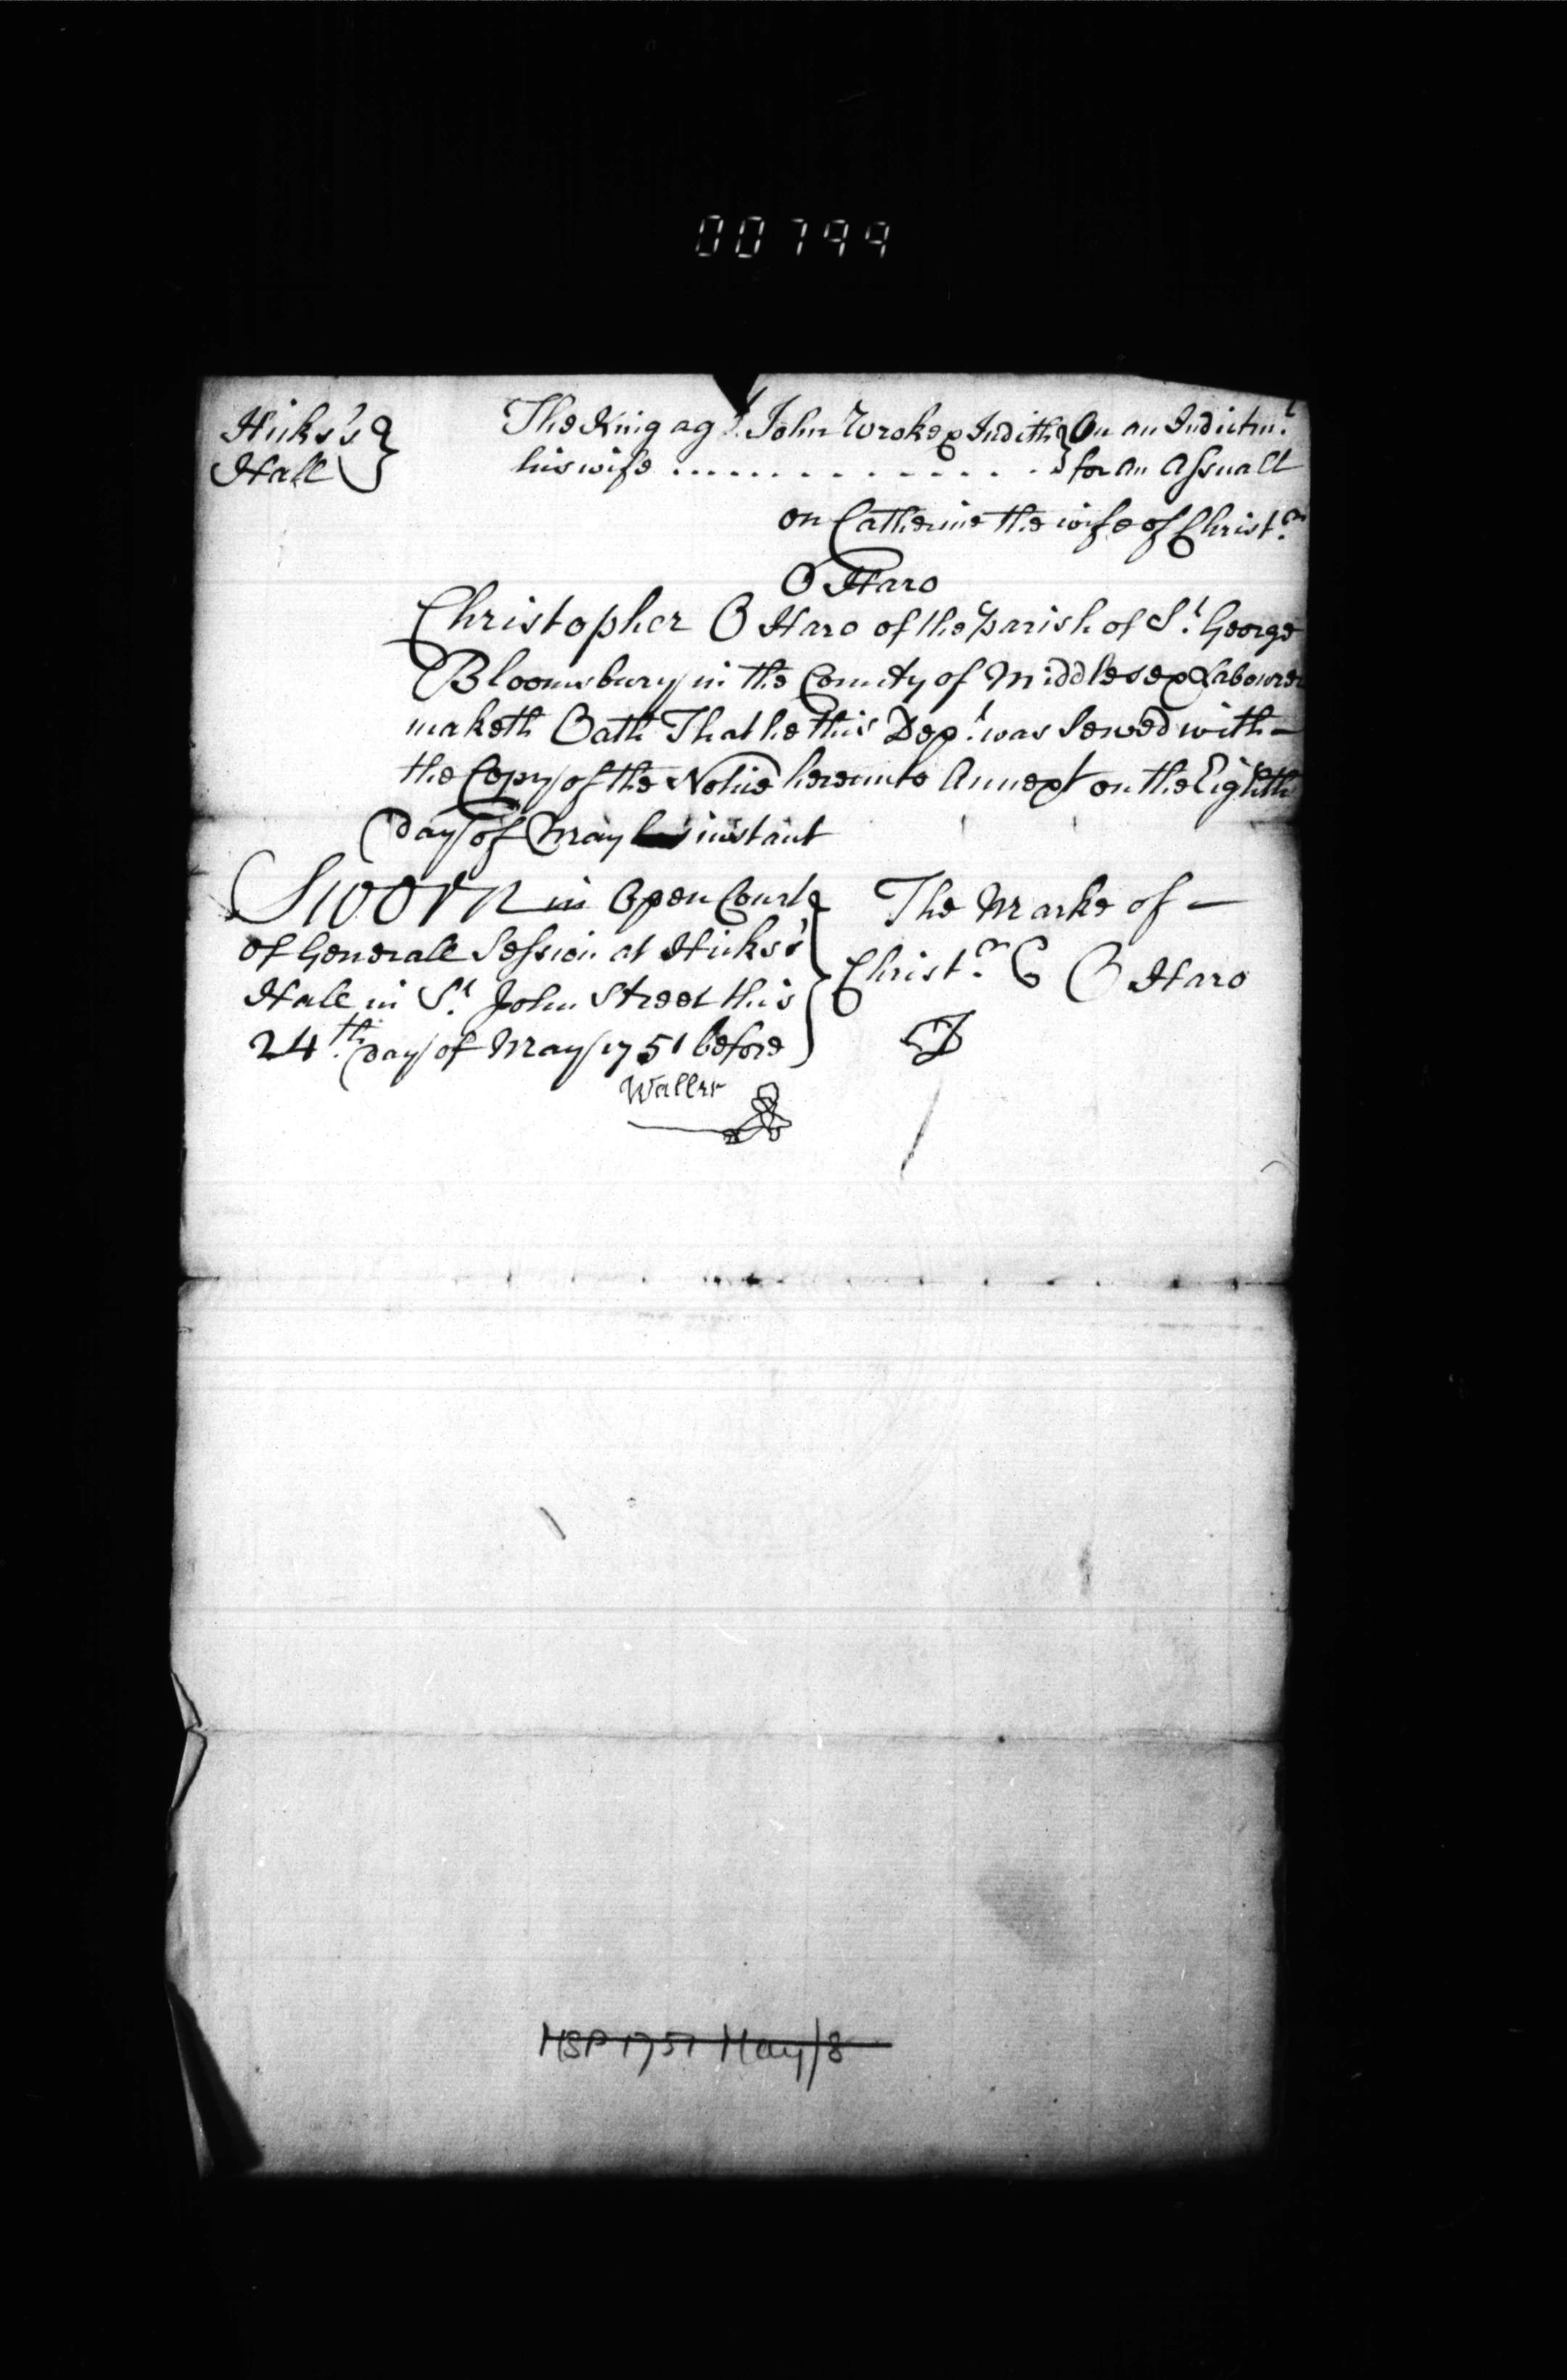 00799
Hicks's }
Hall }
The King agt. John Wroke & Judith } On an Indictmt.
his wife .............. } for an Assualt
on Catherine the wife of Christr.
O Haro
Christopher O Haro of the parish of St. George
Bloomsbury in the County of Middlesex Labourer
maketh Oath That he this Dept. was Served with
the Copy of the Notice hereunto Annext on the Eighth
day of May instant
Sworn in Open Court }
of Generall Session at Hicks's
Hall in St. John Street this
24th. day of May 1751 before
Waller
The Marke of
Christr. O Haro
MSP 1751 May/8